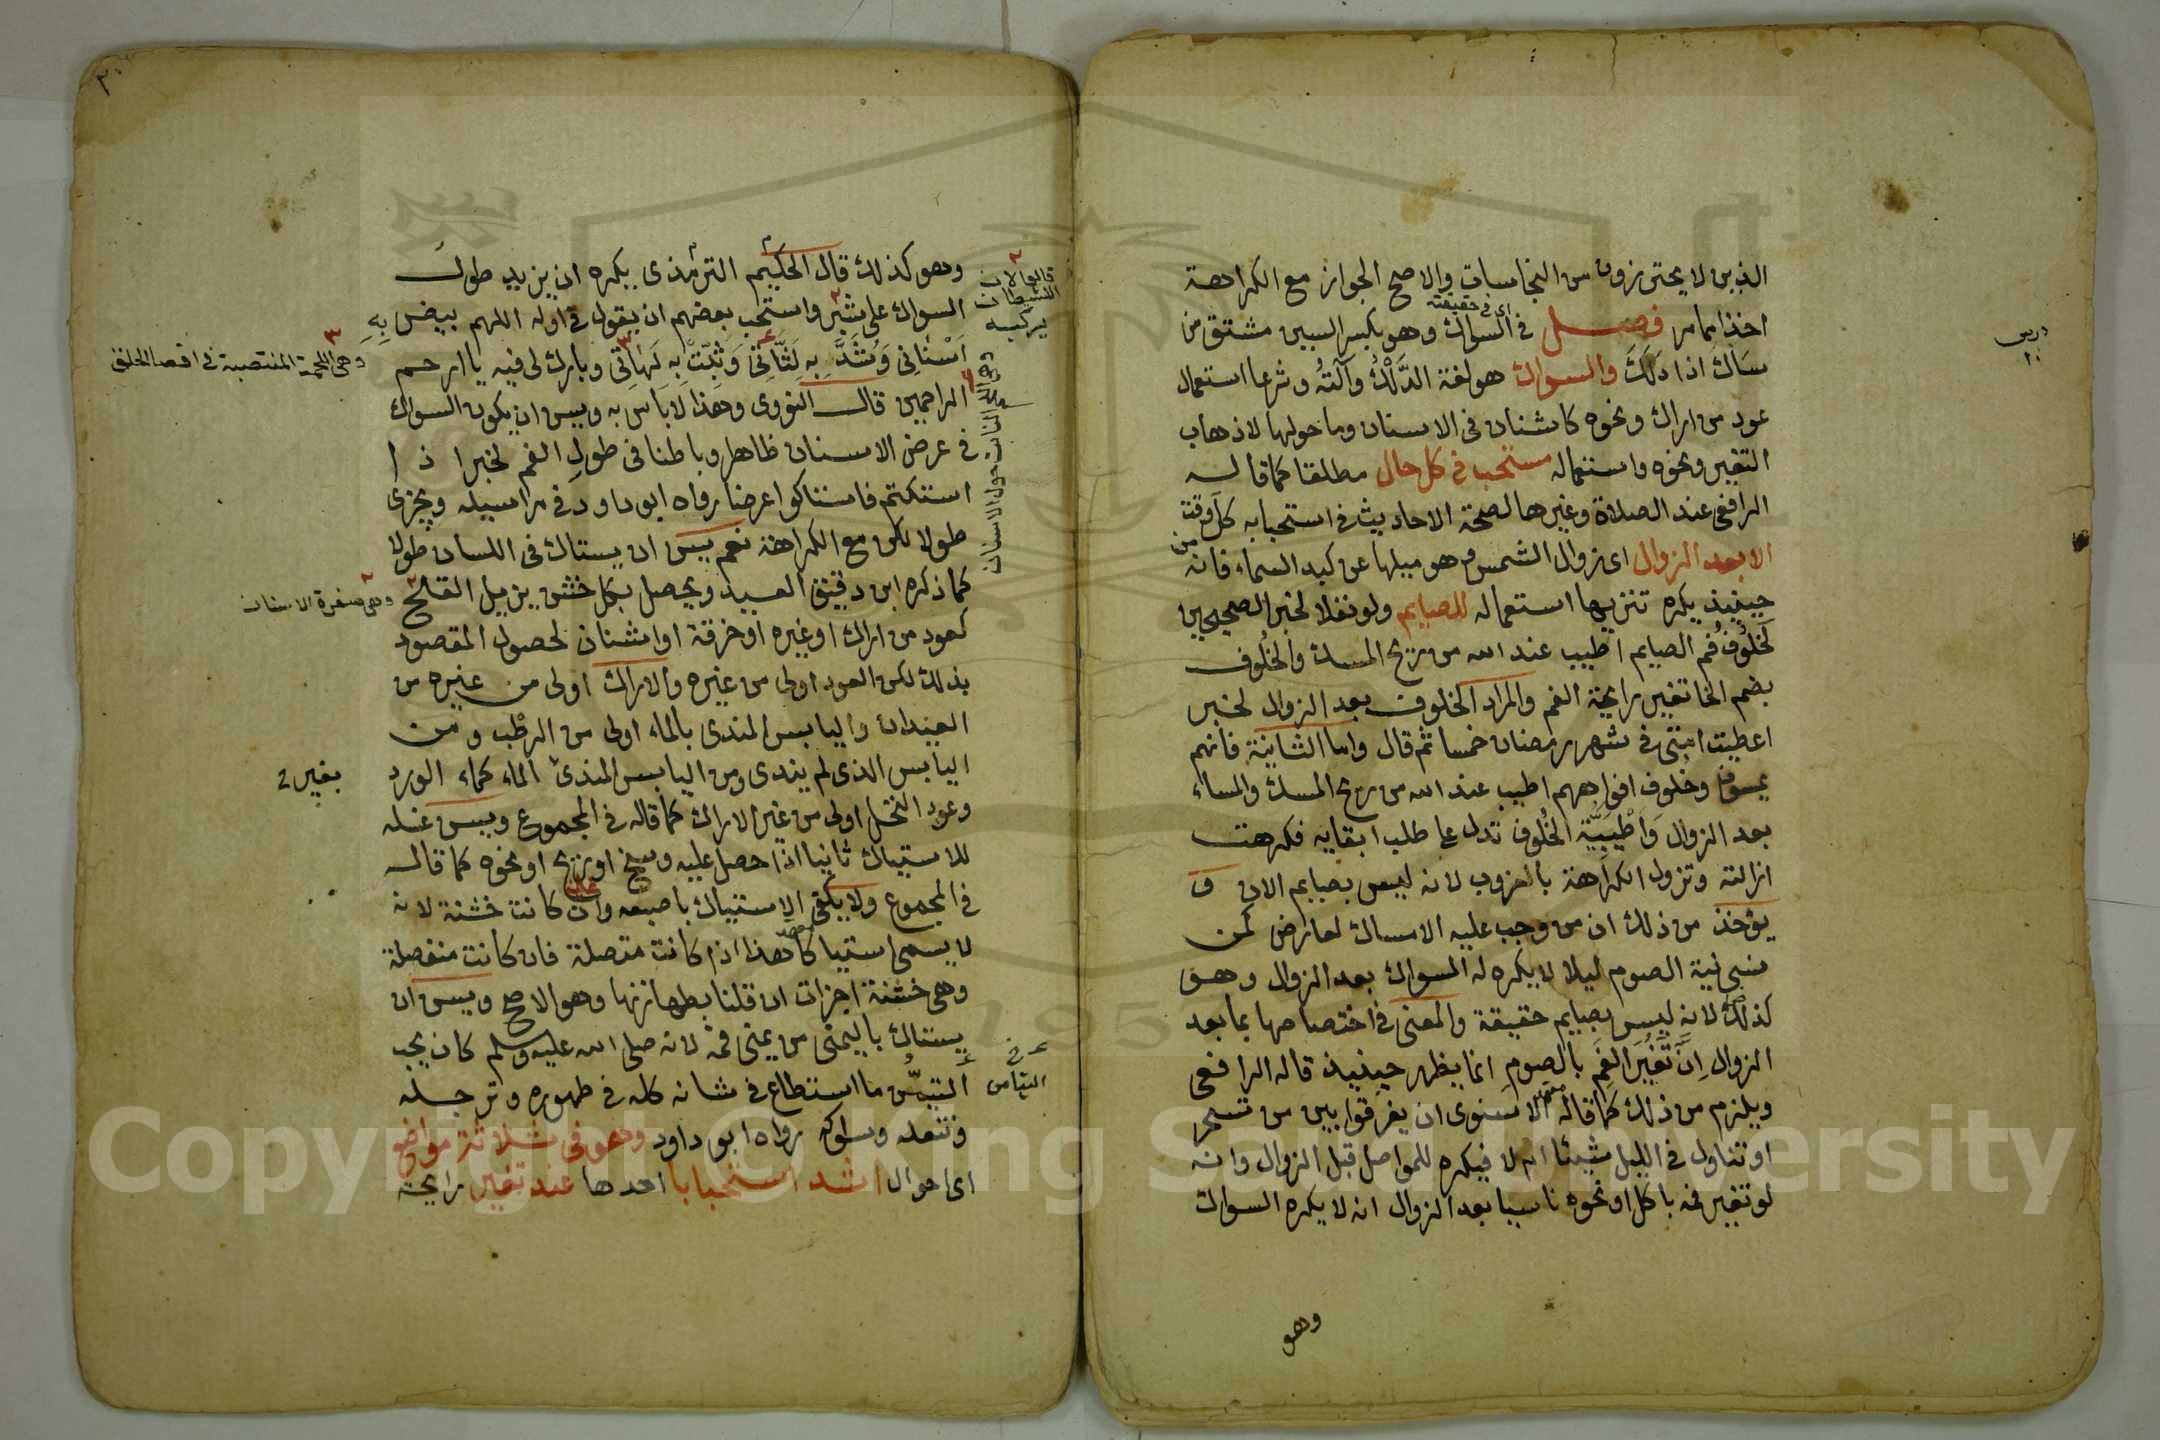 الذين لا يحترزون من النجاسات والاصح الجواز مع الكراهة
اخذا مما مر فصل في السواك وهو بكسر السين مشتق من
اي في حقيقته
ساك اذا دَلَكَ والسواك هو لغة الدَّلْكُ وآلَتُهُ وشرعا استعمال
عود من اراك ونحوه كاشنان في الاسنان وما حولها لاذهاب
التغير ونحوه واستعماله مستحب في كل حال مطلقا كما قاله
الرافعي عند الصلاة وغيرها لصحة الاحاديث في استحبابه كل وقت
الا بعد الزوال اي زوال الشمس وهو ميلها عن كبد السماء فانه
من
حينيذ يكره تنزيها استعماله للصايم ولو نفلا لخبر الصحيحين
لَخُلُوف فم الصايم اطيب عند الله من ريح المسك والخُلُوف
بضم الخا تغير رايحة الفم والمراد الخلوف بعد الزوال لخبر
اعطيت امتي في شهر رمضان خمسا ثم قال واما الثانية فانهم
يمسون وخلوف افواههم اطيب عند الله من ريح المسك والمساء
بعد الزوال وَاَطْيَبِيَّة الخُلوف تدل على طلب ابقايه فكرهت
ازالته وتزول الكراهة بالغروب لانه ليس بصايم الان و
يؤخذ من ذلك ان من وجب عليه الامساك لعارض كمن
نسي نية الصوم ليلا لا يكره له السواك بعد الزوال وهو
كذلك لانه ليس بصايم حقيقة والمعنى في اختصاصها بما بعد
الزوال اِنَّ تَغَيُّرَ الفَمِ بالصوم انما يظهر حينيذ قاله الرافعي
ويلزم من ذلك كما قاله الاسنوى ان يفرقوا بين من تسحر
او تناول في الليل شيئا ام لا فيكره للمواصل قبل الزوال وانه
لو تغير فمه باكل او نحوه ناسيا بعد الزوال انه لا يكره السواك
وهو
درس
٢٠
وهو كذلك قال الحكيم الترمذي يكره ان يزيد طول
السواك على شبر واستحب بعضهم ان يقول في اوله اللهم بيض بِهِ
اَسْنَانِى وَشُدَّ بِهِ لِثَاتِى وَثَبِّتْ بِهِ لَهَاتِى وبارك لى فيه يا ارحم
الراحمين قال النووى وهذا لا باس به ويسن ان يكون السواك
في عرض الاسنان ظاهرا وباطنا في طول الفم لخبر اذا
استكتم فاستاكوا عرضا رواه ابو داود في مراسيله ويجزى
طولا لكن مع الكراهة نعم يسن ان يستاك في اللسان طولا
كما ذكره ابن دقيق العيد ويحصل بكل خشن يزيل القلح
كعود من اراك او غيره او خرقة او اشنان لحصول المقصود
بذلك لكن العود اولى من غيره والاراك اولى من غيره من
العيدان واليابس المندى بالماء اولى من الرطب ومن
اليابس الذي لم يندى ومن اليابس المندى الماء كماء الورد
وعود النخل اولى من غير الاراك كما قاله في المجموع ويسن غسله
للاستياك ثانيا اذا حصل عليه وسخ او ريح او نحوه كما قاله
في المجموع ولا يكفى الاستياك باصبعه وان كانت خشنة لانه
لا يسمى استياكا هذا اذا كانت متصلة فان كانت منفصلة
وهي خشنة اجزات ان قلنا بطهارتها وهو الاصح ويسن ان
يستاك باليمنى من يمنى فمه لانه صلى الله عليه وسلم كان يحب
التيمُّن ما استطاع في شانه كله في طهوره وترجله
وتنعله وسواكه رواه ابو داود وهو في ثلاثة مواضع
اى احوال اشد استحبابا احدها عند تغير رايحة
قالوا لان
الشيطان
يركبه
وهي اللحم النابت حول الاسنان
وهي اللحمة المنتصبة في اقصا الحلق
وهي صفرة الاسنان
بغير
التيامن